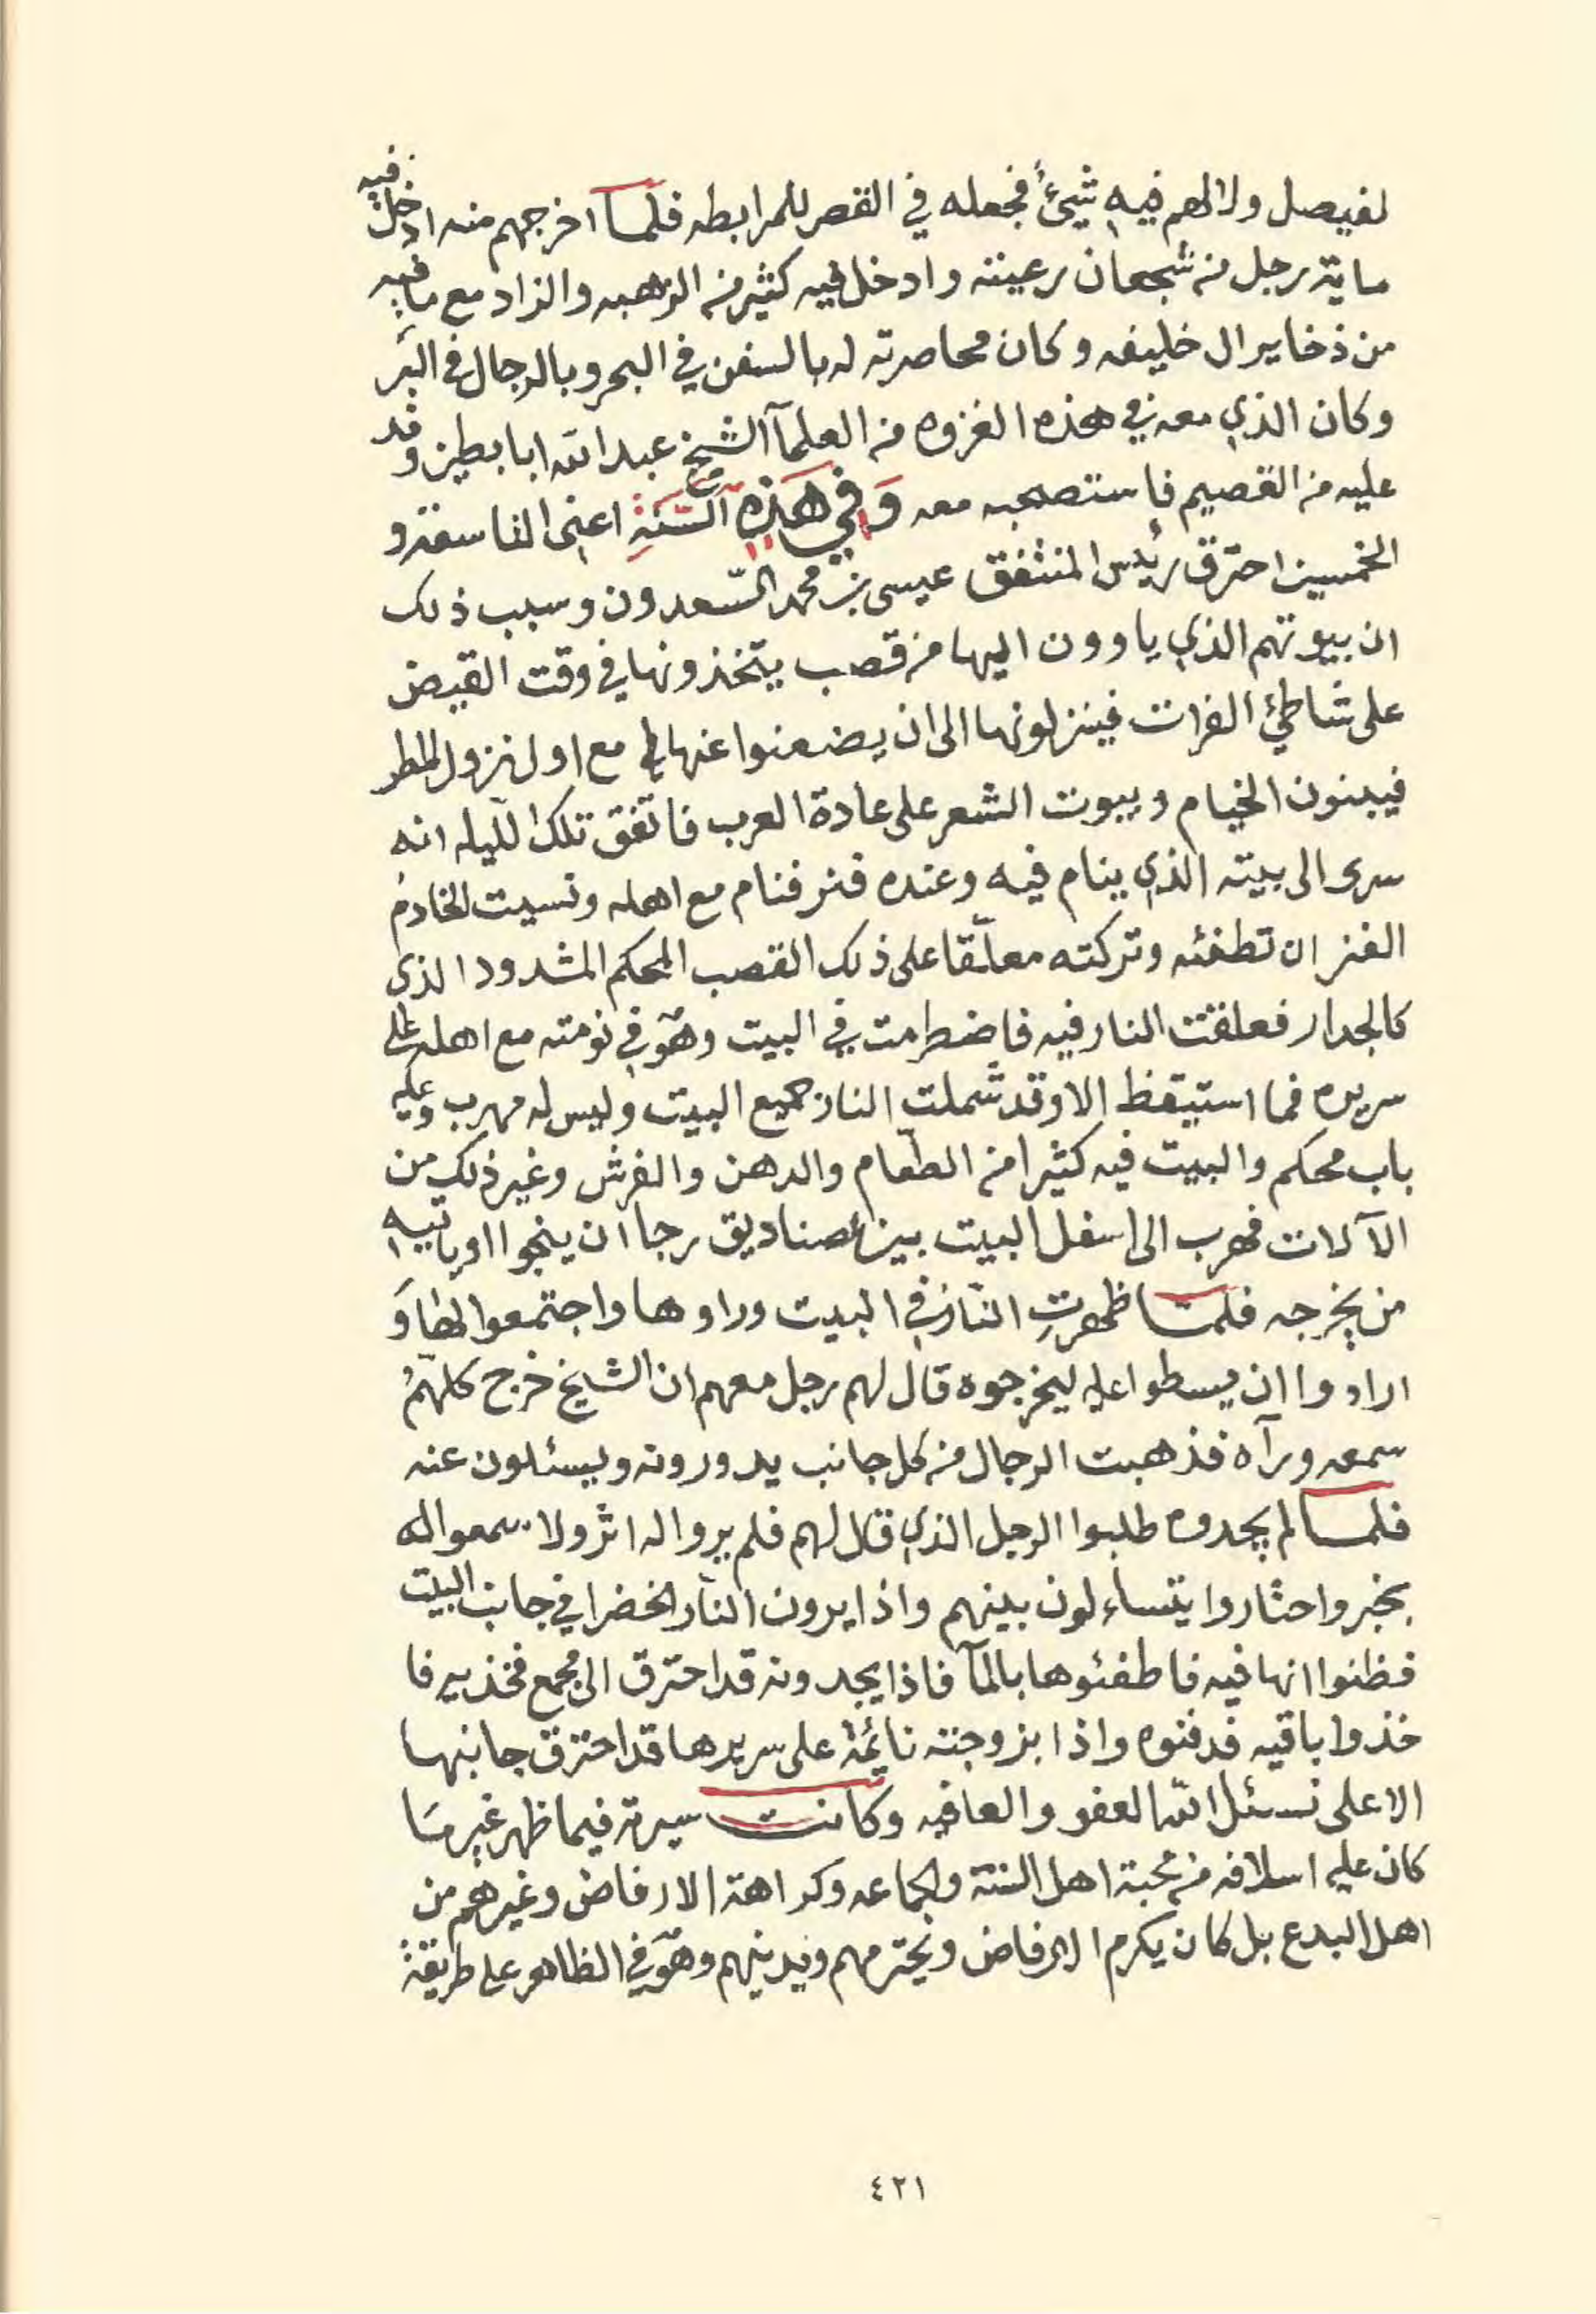 لفيصل ولالهم فيه شيئ فجعله في القصر للمرابطه فلما اخرجهم منه ادخل فيه
ماية رجل من شجعان رعيته وادخل فيه كثير من الزهبه والزاد مع ما فيه
من ذخاير ال خليفه وكان محاصرته له بالسفن في البحر وبالرجال في البر
وكان الذي معه في هذه الغزوه من العلمآ الشيخ عبدالله ابا بطين وفد
عليه من القصيم فاستصحبه معه وَفي هَذِهِ السَّنَةِ اعني التاسعة و
الخمسين احترق رئيس المنتفق عيسى بن محمد السّعدون وسبب ذلك
ان بيوتهم الذي ياوون اليها من قصب يتخذونها في وقت القيض
على شاطئ الفرات فينزلونها الى ان يضعنوا عنها مع اول نزول المطر
فيبنون الخيام وبيوت الشعر على عادة العرب فاتفق تلك اللّيله انه
سرى الى بيته الذي ينام فيه وعنده فنر فنام مع اهله ونسيت الخادم
الفنر ان تطفئه وتركته معلّقا على ذلك القصب المحكم المشدود الذي
كالجدار فعلقت النار فيه فاضطرمت في البيت وهو في نومته مع اهله على
سريره فما استيقظ الا وقد شملت النار جميع البيت وليس له مهرب وعليه
باب محكم والبيت فيه كثيرا من الطّعام والدهن والفرش وغير ذلك من
الآلات فهرب الى اسفل البيت بين صناديق رجا ان ينجوا او ياتيه
من يخرجه فلمّا ظهرتِ النّار في البيت وراوها واجتمعوا لها وَ
ارادوا ان يسطوا عليه ليخرجوه قال لهم رجل معهم ان الشيخ خرج كلهّم
سمعه ورآه فذهبت الرجال من كل جانب يدورونه ويسئلون عنه
فلمّا لم يجدوه طلبوا الرجل الذي قال لهم فلم يروا له اثر ولا سمعوا له
بخبر واحتاروا يتساءلون بينهم واذا يرون النّار الخضرا في جانب البيت
فظنوا انها فيه فاطفئوها بالمآ فاذا يجدونه قد احترق الى مجمع فخذيه فا
خذوا باقيه فدفنوه واذا بزوجته نايمة على سريرها قد احترق جانبها
الاعلى نسئل الله العفو والعافيه وكانت سيرته فيما ظهر غير مَا
كان عليه اسلافه من محبة اهل السنة والجماعه وكراهة الارفاض وغيرهم من
اهل البدع بل كان يكرم الارفاض ويحترمهم ويدنيهم وهو في الظاهر على طريقة
٤٢١